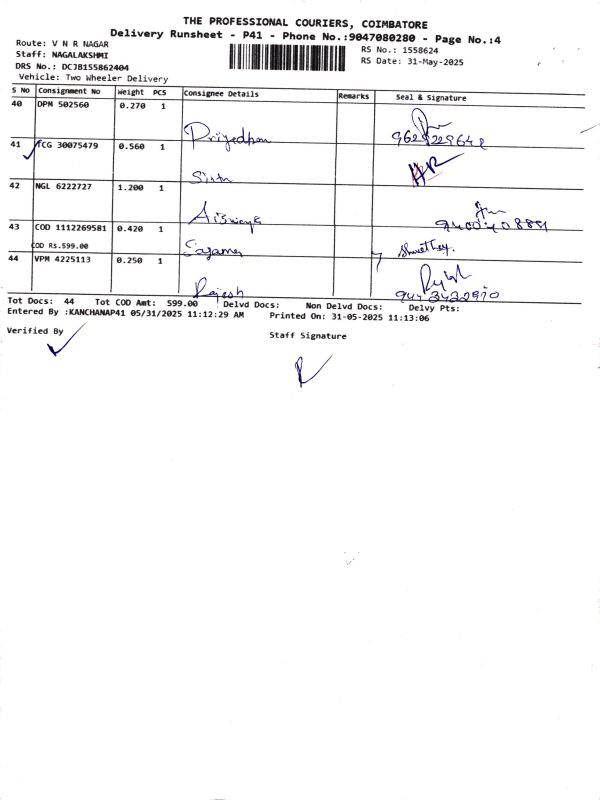 THE PROFESSIONAL COURIERS, COIMBATORE
Delivery Runsheet - P41 - Phone No.:9047080280 - Page No.:4
Route: V N R NAGAR
Staff: NAGALAKSHMI
DRS No.: DCJB155862404
Vehicle: Two Wheeler Delivery
RS No.: 1558624
RS Date: 31-May-2025
S No Consignment No Weight PCS Consignee Details Remarks Seal & Signature
40 DPM 502560 0.270 1
41 TCG 30075479 0.560 1
42 NGL 6222727 1.200 1
43 COD 1112269581 0.420 1
COD Rs.599.00
44 VPM 4225113 0.250 1 Rajesh
Tot Docs: 44 Tot COD Amt: 599.00 Delvd Docs: Non Delvd Docs: Delvy Pts:
Entered By :KANCHANAP41 05/31/2025 11:12:29 AM Printed On: 31-05-2025 11:13:06
Verified By
Staff Signature